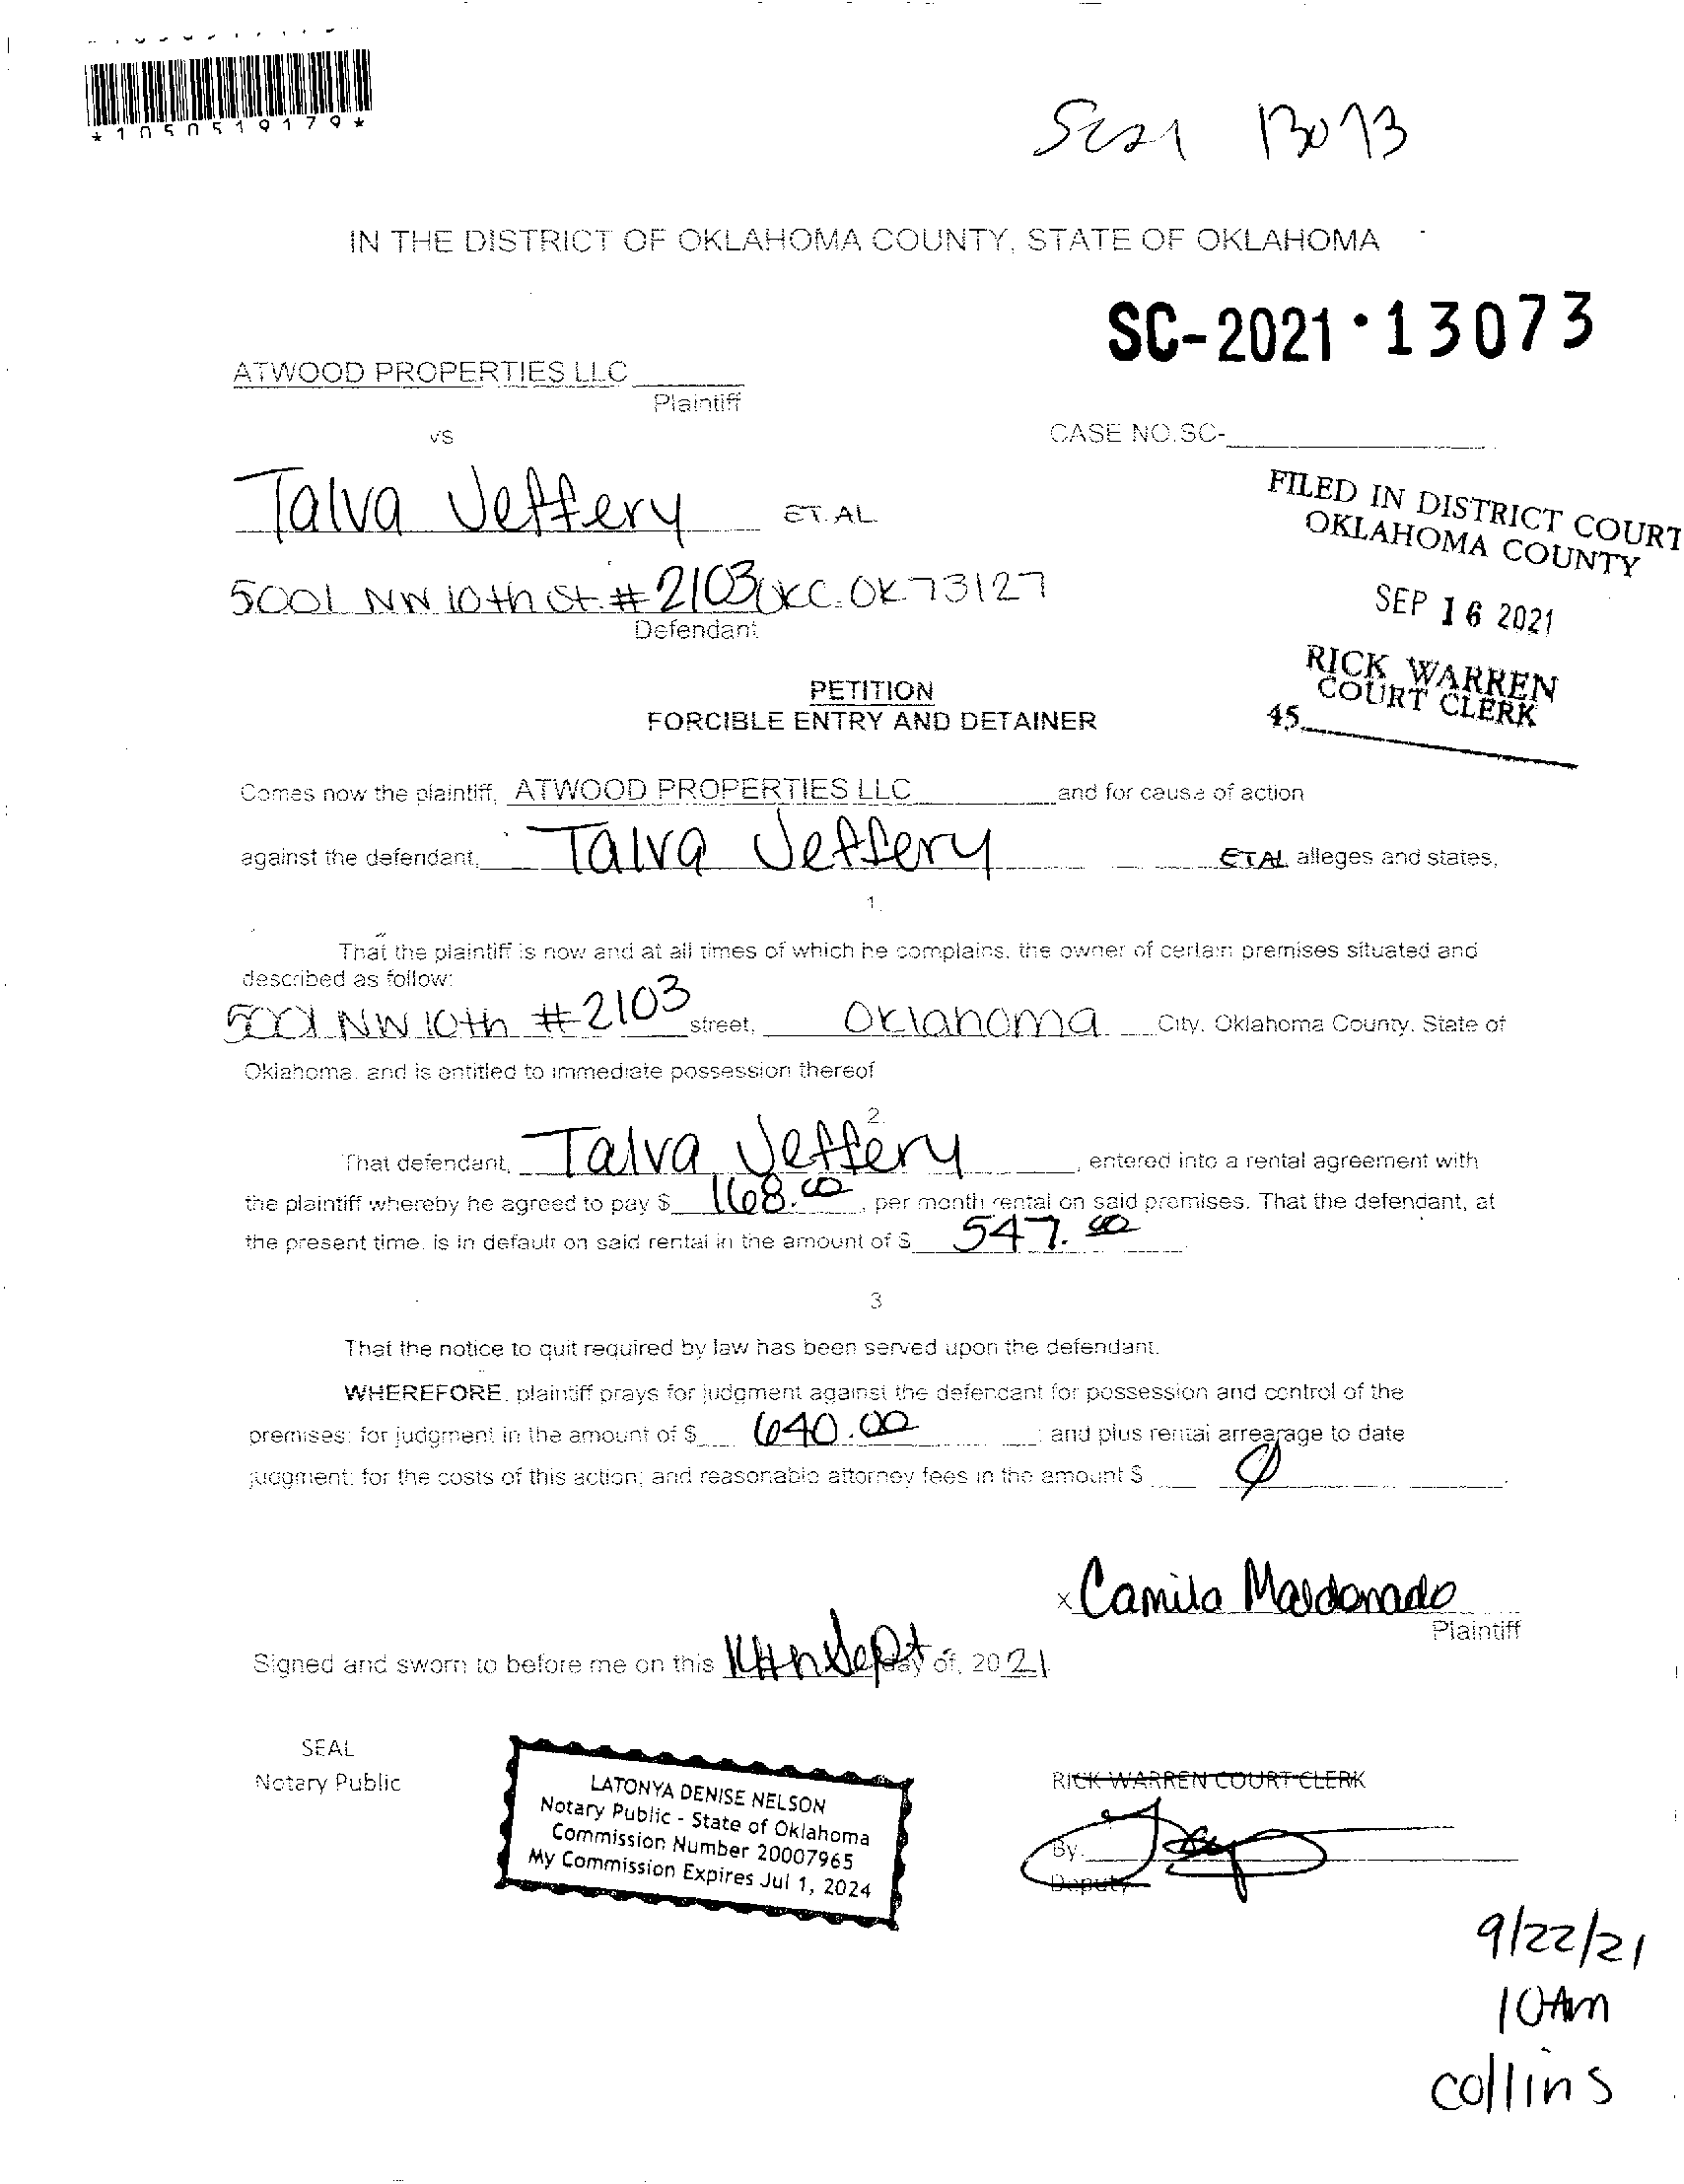 *1050519179*
SC21 13073
IN THE DISTRICT OF OKLAHOMA COUNTY, STATE OF OKLAHOMA
SC-2021·13073
ATWOOD PROPERTIES LLC
Plaintiff
vs
CASE NO.SC-
Talva Jeffery ET. AL
FILED IN DISTRICT COURT
OKLAHOMA COUNTY
5001 NW 10th St. #2103 OKC. OK 73127
Defendant
SEP 16 2021
RICK WARREN
COURT CLERK
45
PETITION
FORCIBLE ENTRY AND DETAINER
Comes now the plaintiff, ATWOOD PROPERTIES LLC and for cause of action
against the defendant, Talva Jeffery ETAL alleges and states,
1.
That the plaintiff is now and at all times of which he complains, the owner of certain premises situated and
described as follow:
5001 NW 10th #2103 street, Oklahoma City, Oklahoma County, State of
Oklahoma, and is entitled to immediate possession thereof
2.
That defendant, Talva Jeffery, entered into a rental agreement with
the plaintiff whereby he agreed to pay $ 168.00, per month rental on said premises. That the defendant, at
the present time, is in default on said rental in the amount of $ 547.00
3
That the notice to quit required by law has been served upon the defendant.
WHEREFORE, plaintiff prays for judgment against the defendant for possession and control of the
premises; for judgment in the amount of $ 640.00; and plus rental arrearage to date
judgment; for the costs of this action; and reasonable attorney fees in the amount $ 0
x Camila Maldonado
Plaintiff
Signed and sworn to before me on this Sept day of, 2021
SEAL
Notary Public
LATONYA DENISE NELSON
Notary Public - State of Oklahoma
Commission Number 20007965
My Commission Expires Jul 1, 2024
RICK WARREN COURT CLERK
By
Deputy
9/22/21
10Am
collins